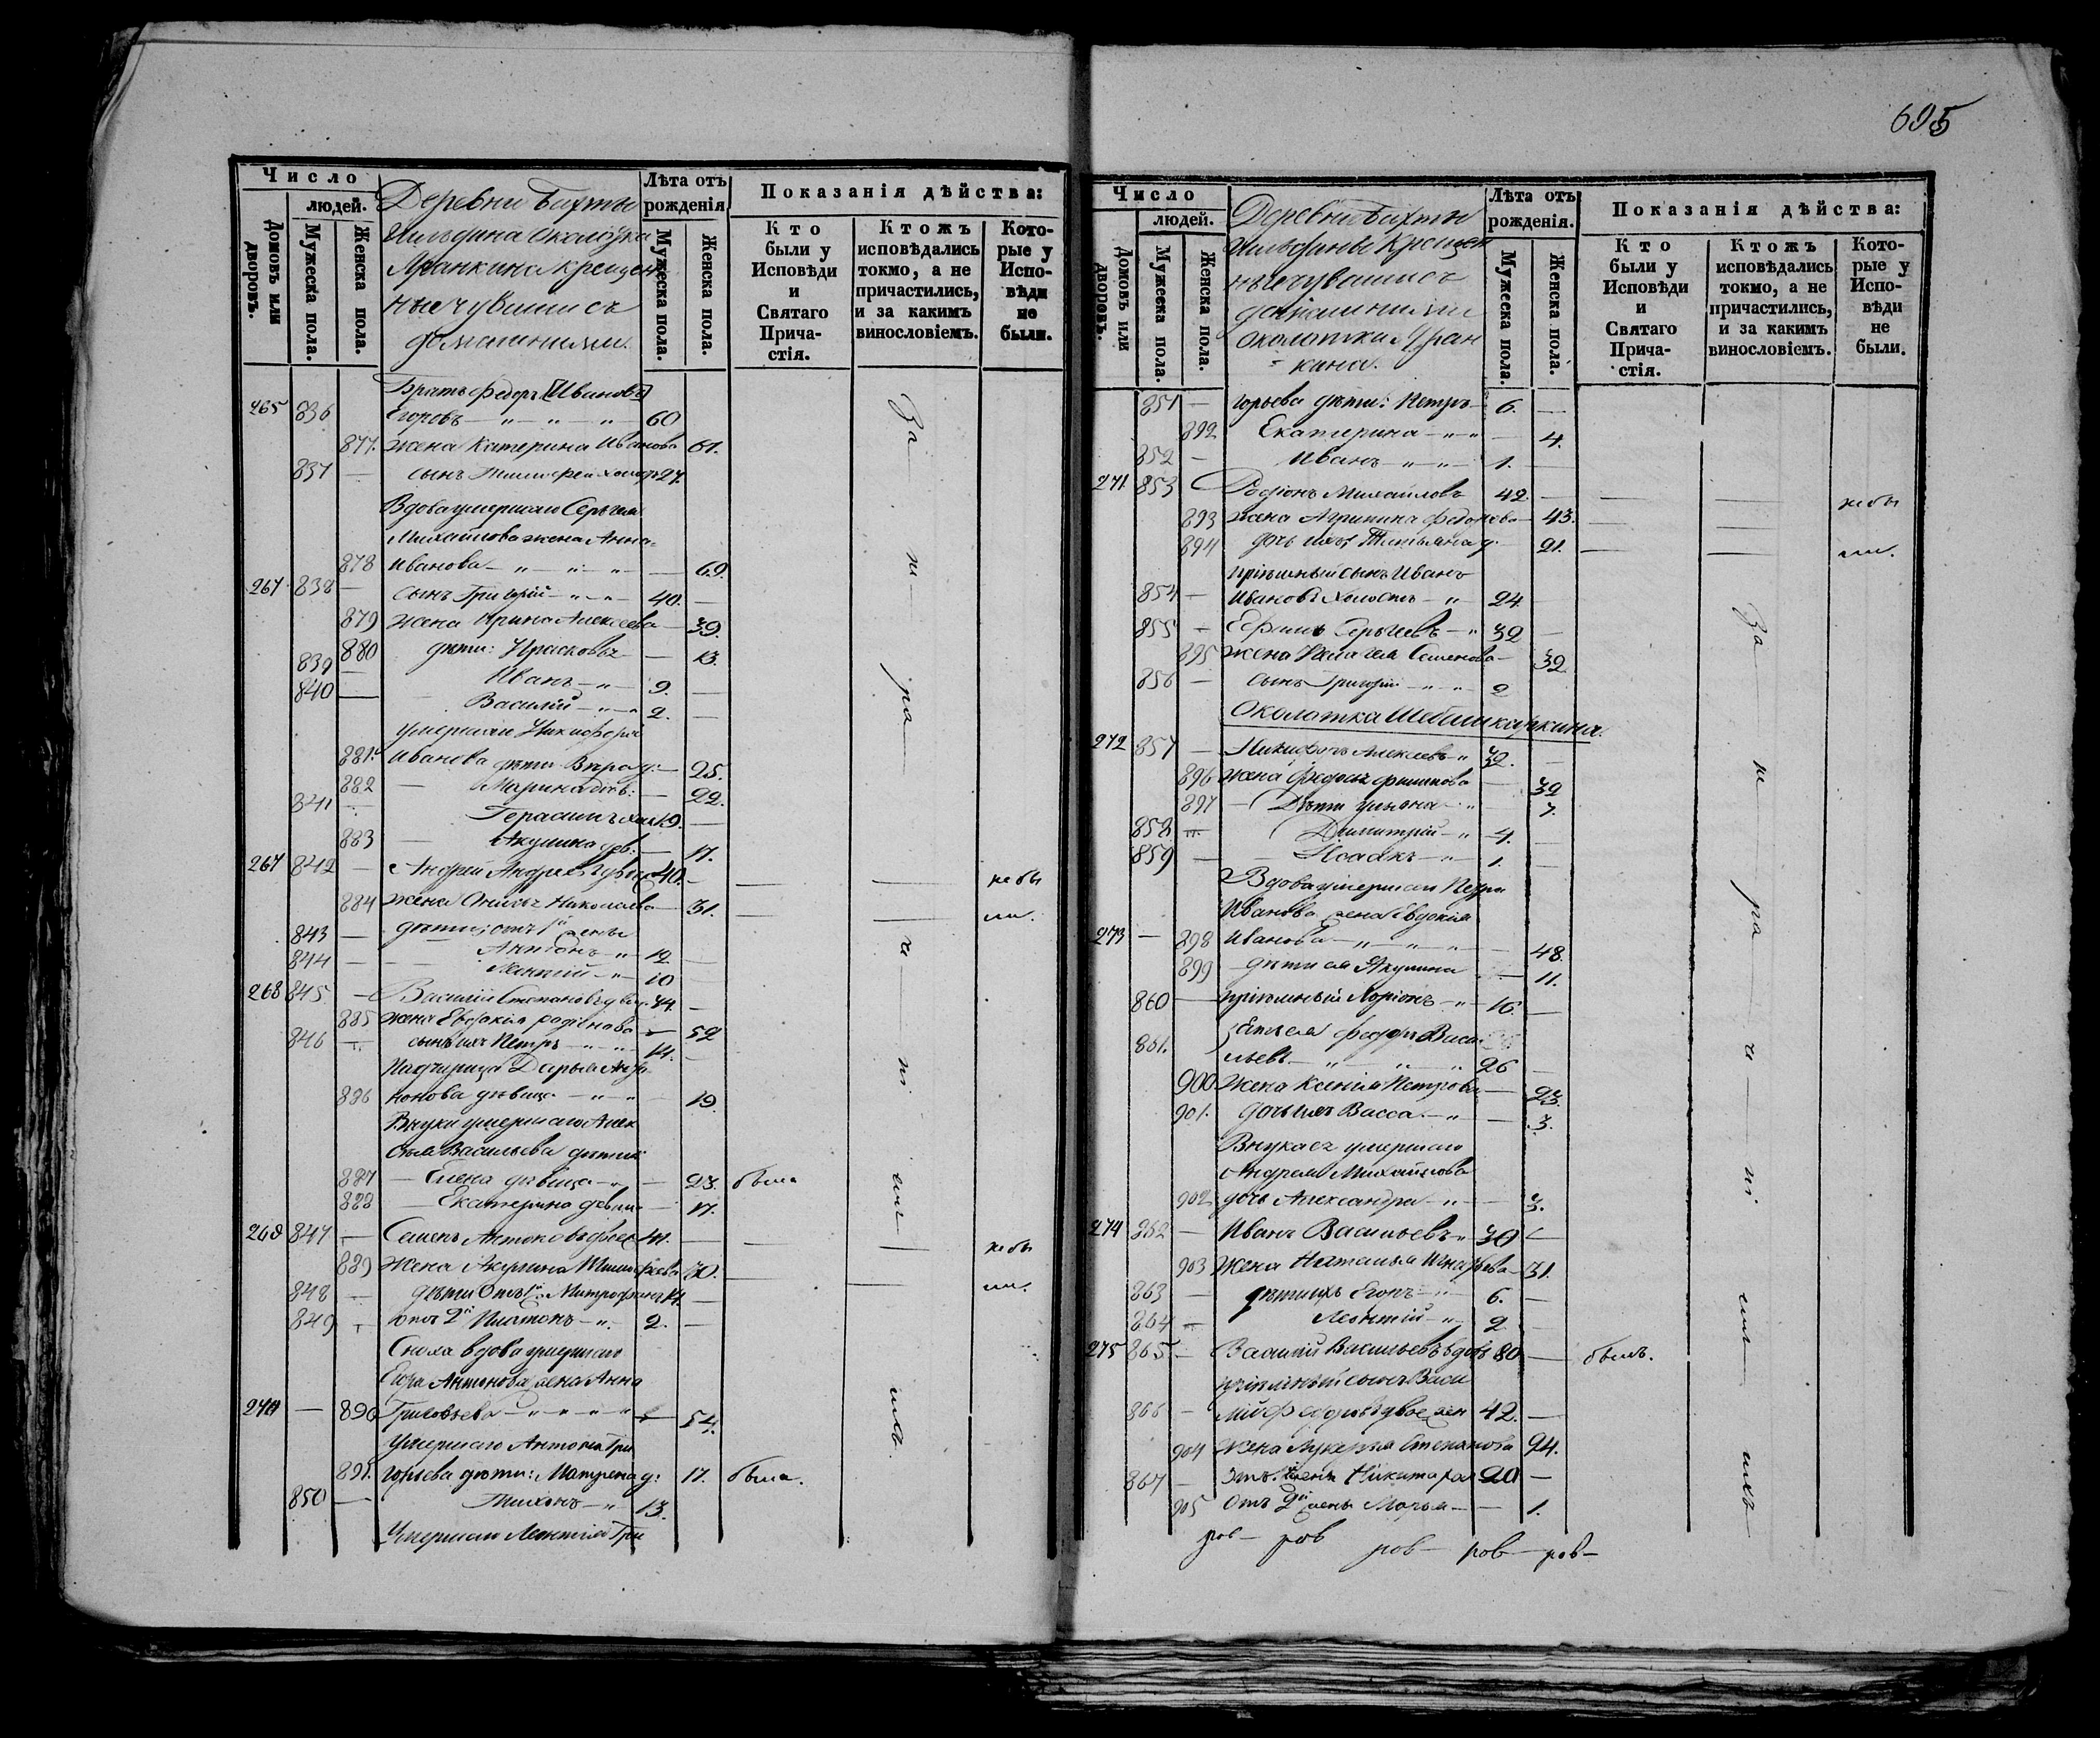 695
Число
людей.
Домовъ или дворовъ.
Мужеска пола.
Женска пола.
Деревни Бахты
Ильдина Околотка
крещен
ные чуваши съ
домашними.
Лѣта отъ рожденія
Мужеска пола.
Женска пола.
Показанія дѣйства:
Кто были у Исповѣди и Святаго Прича- стія.
Ктожъ исповѣдались токмо, а не причастились, и за какимъ винословіемъ.
Кото- рые у Испо- вѣди не были.
Братъ Федоръ [Ивановъ]
265 836 Егоровъ — „ — „ — „ 60
877. жена Катерина Иванова 61.
837 — сынъ Тимофей холостъ 27.
Вдова умершаго Сергея
Михайлова жена Анна
878 Иванова — „ — „ — „ — 69.
267 838 — сынъ Григорій — „ — „ 40. —
879 жена Ирина Алексеева — 39.
880 дѣти: Прасковья — 13.
839 — Иванъ — „ — 9. —
840 — Василій — „ — „ 2. —
умершаго Никифора
881. Иванова дѣти Вѣра д: — 25.
882 — Марина дѣв: — 22.
841 — Герасимъ хол 19. —
883 — Акулина дев: — 17.
267 842 — Андрей Андреевъ 40. — не бы
884 жена Николаева — 31. — ли.
843 — дѣти: отъ 1й жены
Антонъ — „ 12 —
844 — Леонтій — „ 10
268 845 — Василій Степановъ двое 44. —
885 жена Евдокія Родионова — 52
846 — сынъ ихъ Петръ — „ — „ 14. —
Падчерица Дарья
886 нонова дѣвица — „ — „ 19.
Внуки умершаго Алек
сея Васильева дѣти:
887 — Елена дѣвица — „ — 23. была
888 — Екатерина девица — 17.
269 847 — Семенъ Антоновъ двоеж 44. — не бы
889 жена Акулина Тимофеева 30. — ли.
848 — дѣти Отъ 1й Митрофанъ 14. —
849 — Отъ 2й Платонъ — „ 2. —
Сноха вдова умершаго
Егора Антонова жена Анна
270 — 890 Григорьева — „ „ „ „ — 54.
Умершаго Антона Гри
891. горьева дѣти: Матрена д: 17. была.
850 — Тихонъ — „ 13.
Умершаго Леонтія Гри
За не ра че ні емъ ихъ.
Число
людей.
Домовъ или дворовъ.
Мужеска пола.
Женска пола.
Деревни Бахты
Ильдины Крещен
ные чуваши съ
домашними
околотки Уран
= кина.
Лѣта отъ рожденія.
Мужеска пола.
Женска пола.
Показанія дѣйства:
Кто были у Исповѣди и Святаго Прича- стія.
Ктожъ исповѣдались токмо, а не причастились, и за какимъ винословіемъ.
Кото- рые у Испо- вѣди не были.
851 — горьева дѣти: Петръ — 6. —
892 Екатерина — „ „ — 4.
852 — Иванъ — „ — „ — 1. —
271 853 Родіонъ Михайловъ 42. — не бы
893 жена Агрипина Федорова — 43. —
894 дочь ихъ Татьяна д. 21. — ли.
пріемный сынъ Иванъ
854 — Ивановъ холостъ — „ 24. —
855 — Ефимъ Сергеевъ — „ 32 —
895 жена Пелагея Семенова — 32.
856 — сынъ Григорій — „ — „ 2
Околотка Шебашкаркина.
272 857 — Никифоръ Алексеевъ „ 32. —
896 жена Федосья Филипова — 32
897 — Дѣти Ульяна — „ — 7.
858 — Димитрій — „ 4. —
859 — Исаакъ — „ 1. —
Вдова умершаго Петра
Иванова жена Евдокія
273 — 898 Иванова — „ — „ — „ — 48.
899 дѣти ея Акулина — 11.
860 — пріемный Ларіонъ — „ 16. —
зять ея Федоръ Васи
861. льевъ — „ — „ — „ 26 —
900 Жена Ксенія Петрова — 23.
901. дочь ихъ Васса — „ — 3.
Внука ея умершаго
Андрея Михайлова
902 дочь Александра — „ — 3.
274 862 — Иванъ Васильевъ „ 30 —
903 жена Наталья Игнатьева — 31.
863 — дѣти ихъ Егоръ — „ 6. —
864 — Леонтій — „ 2 —
275 865 — Василій Васильевъ вдовъ 80 — былъ.
пріемный сынъ Васи
866 — лій Федоровъ двоежен 42. —
904 жена Лукерья Степанова 24.
867 — отъ 1й жены Никита хол 20 —
905 Отъ 2й жены Марья — — 1.
ров — ров ров — ров — ров —
За не ра че ні емъ ихъ